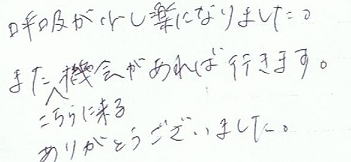 呼吸が少し楽になりました。
また機会があれば行きます。
こちらに来る
ありがとうございました。